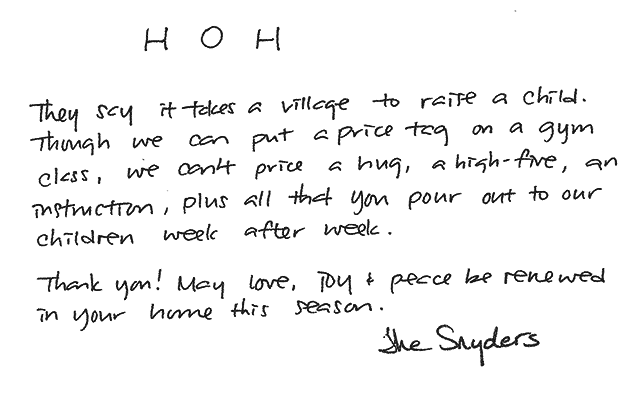 H O H
They say it takes a village to raise a child.
Though we can put a price tag on a gym
class, we can't price a hug, a high-five, an
instruction, plus all that you pour out to our
children week after week.
Thank you! May love, joy & peace be renewed
in your home this season.
The Snyders